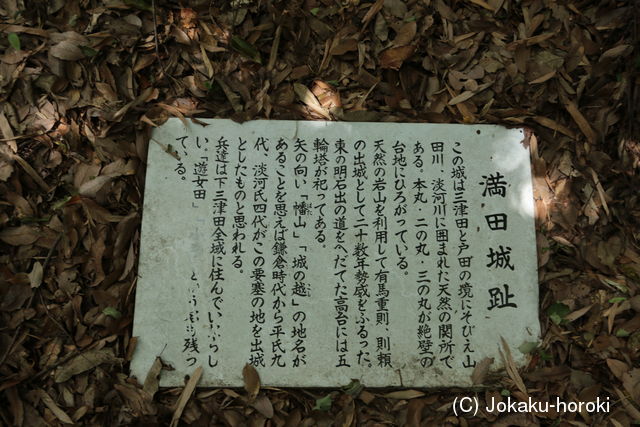 満田城趾
この城は三津田と戸田の境にそびえ山
田川、淡河川に囲まれた天然の関所で
ある。本丸・二の丸・三の丸が絶壁の
台地にひろがっている。
天然の岩山を利用して有馬重則、則頼
の出城として二十数年勢威をふるった。
東の明石出の道をへだてた高台には五
輪塔が祀ってある。
矢の向い「幡山」「城の越」の地名が
あることを思えば鎌倉時代から平氏九
代、淡河氏四代がこの要塞の地を出城
としたものと思われる。
兵達は下三津田全域に住んでい らし
い、「遊女田」 も残っ
ている。
(C) Jokaku-horoki